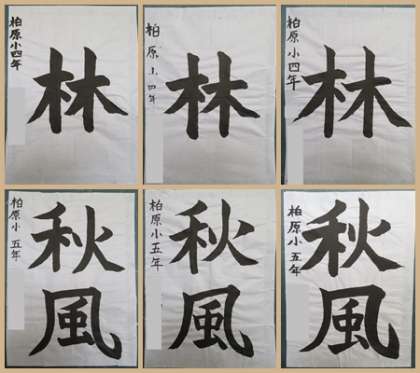 柏原小四年
林
柏原小四年
林
柏原小四年
林
柏原小五年
秋風
柏原小五年
秋風
柏原小五年
秋風